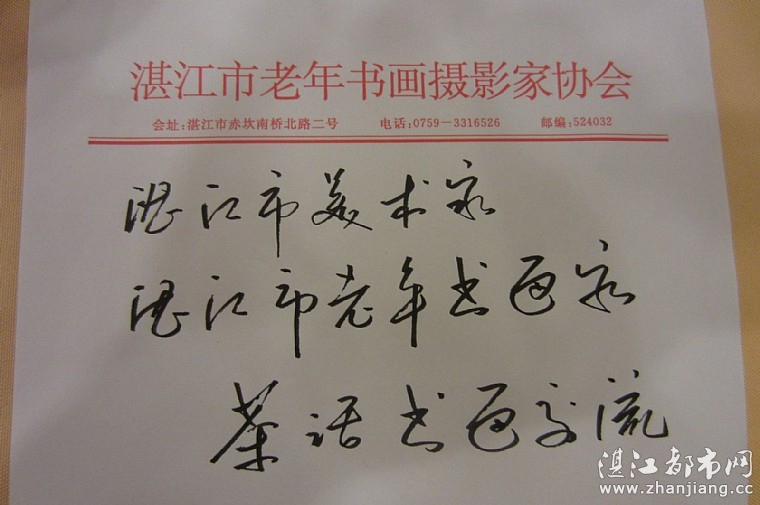 湛江市老年书画摄影家协会
会址:湛江市赤坎南桥北路二号 电话:0759-3316526 邮编:524032
湛江市美术家
湛江市老年书画家
茶话书画交流
湛江都市网
www.zhanjiang.cc